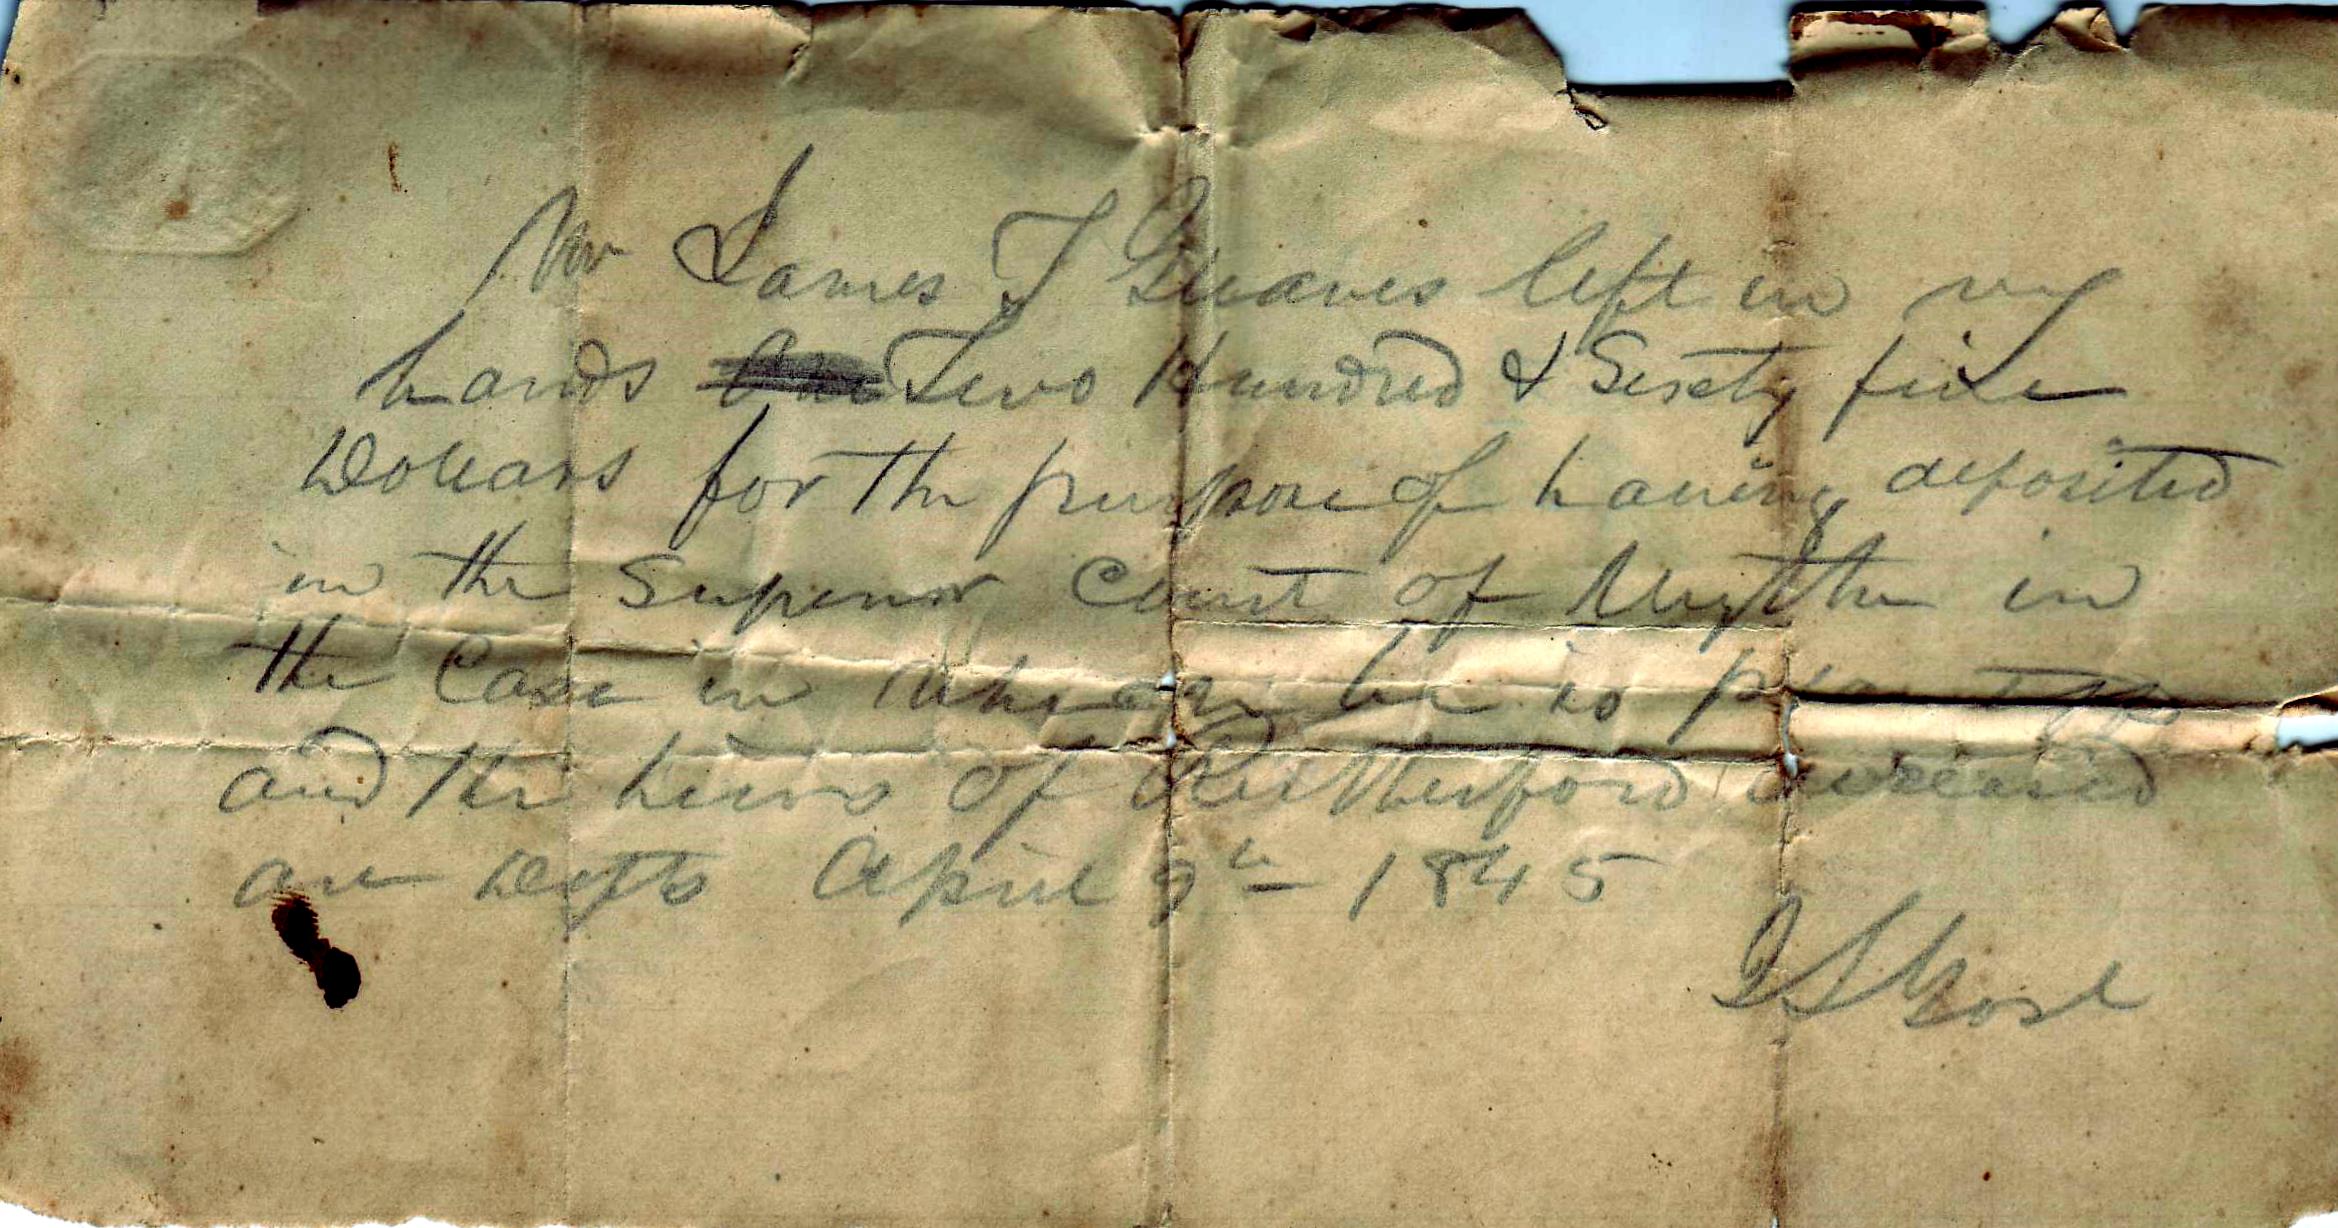 Mr James T Gleaves left in my
hands Two Hundred & Sixty five
Dollars for the purpose of having deposited
in the Superior Court of Wythe in
the Case in which he is plaintiff
and the heirs of Rutherford deceased
are Defts April 9th 1845